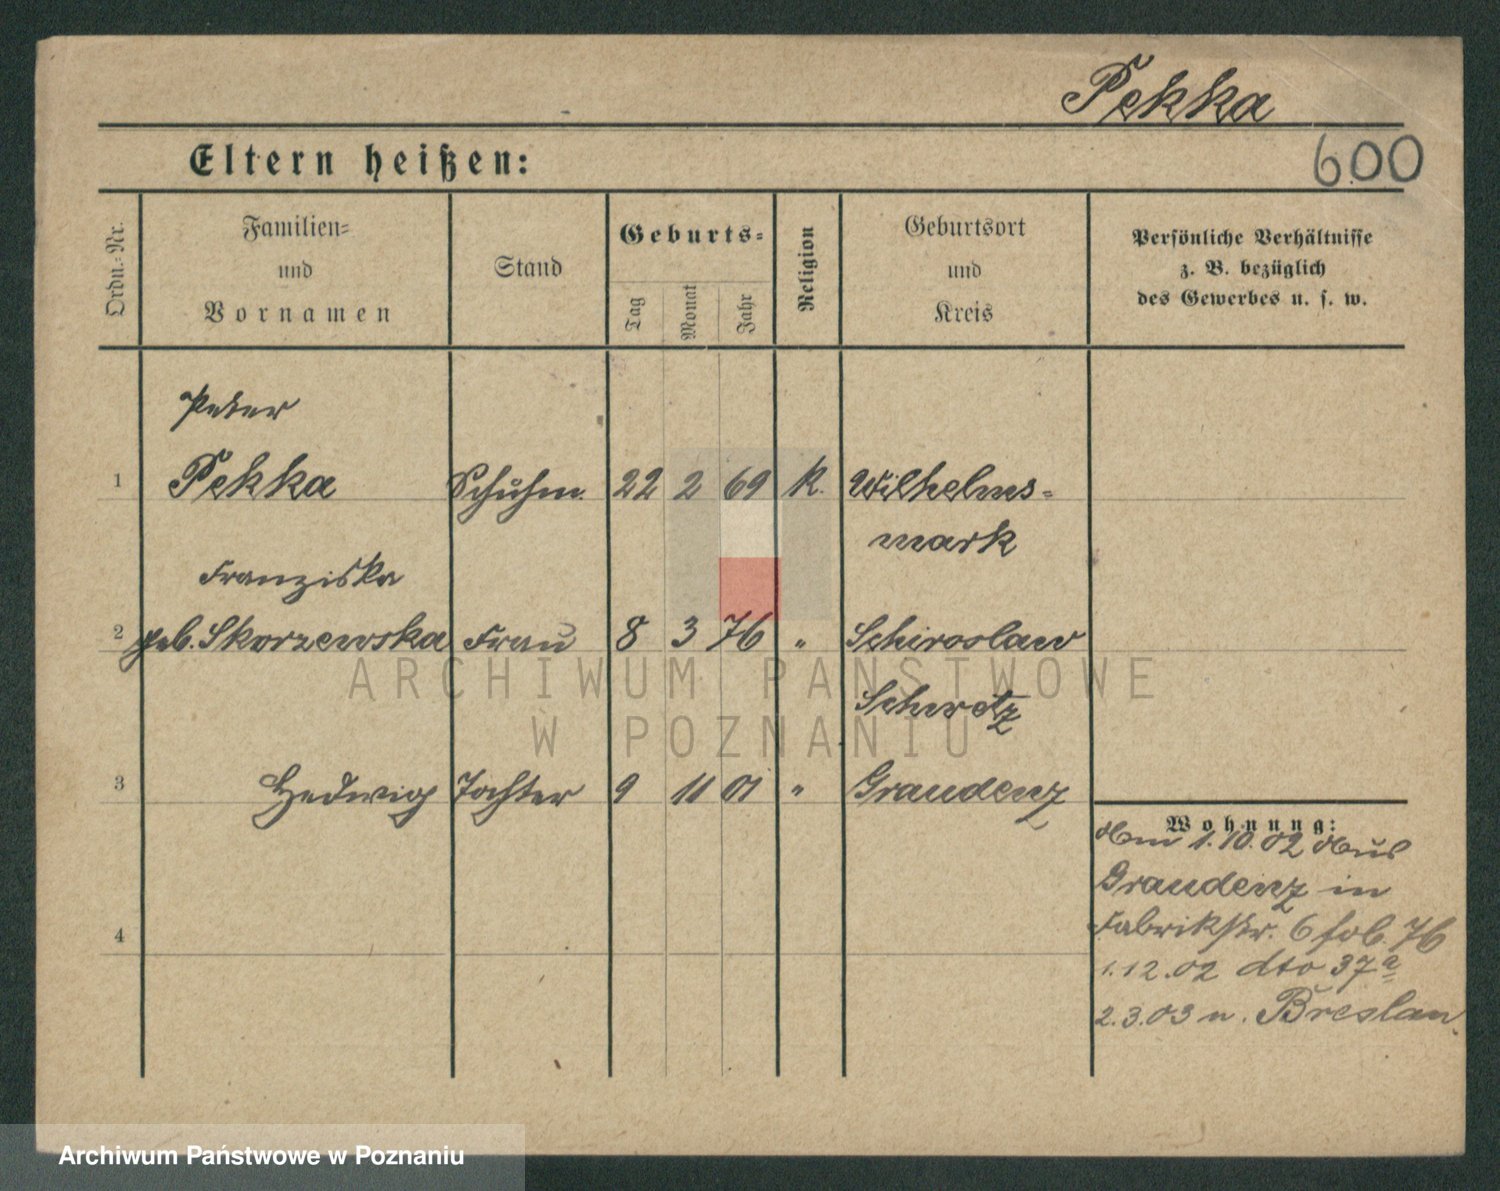 Pekka
600
Eltern heißen:
Ordn.-Nr.
Familien-
und
Vornamen
Stand
Geburts-
Tag
Monat
Jahr
Religion
Geburtsort
und
Kreis
Persönliche Verhältnisse
z. B. bezüglich
des Gewerbes u. s. w.
Peter
1 Pekka Schuhm. 22 2 69 K. Wilhelms-
mark
Franziska
2 geb. Skorzewska Frau 8 3 76 " Schiroslaw
Schwetz
3 Hedwig Tochter 9 11 01 " Graudenz
Wohnung:
1.10.02 aus
Graudenz in
4
Fabrikstr. 6 76
1.12.02 dto 37a
2.3.03 n. Breslau
ARCHIWUM PAŃSTWOWE
W POZNANIU
Archiwum Państwowe w Poznaniu